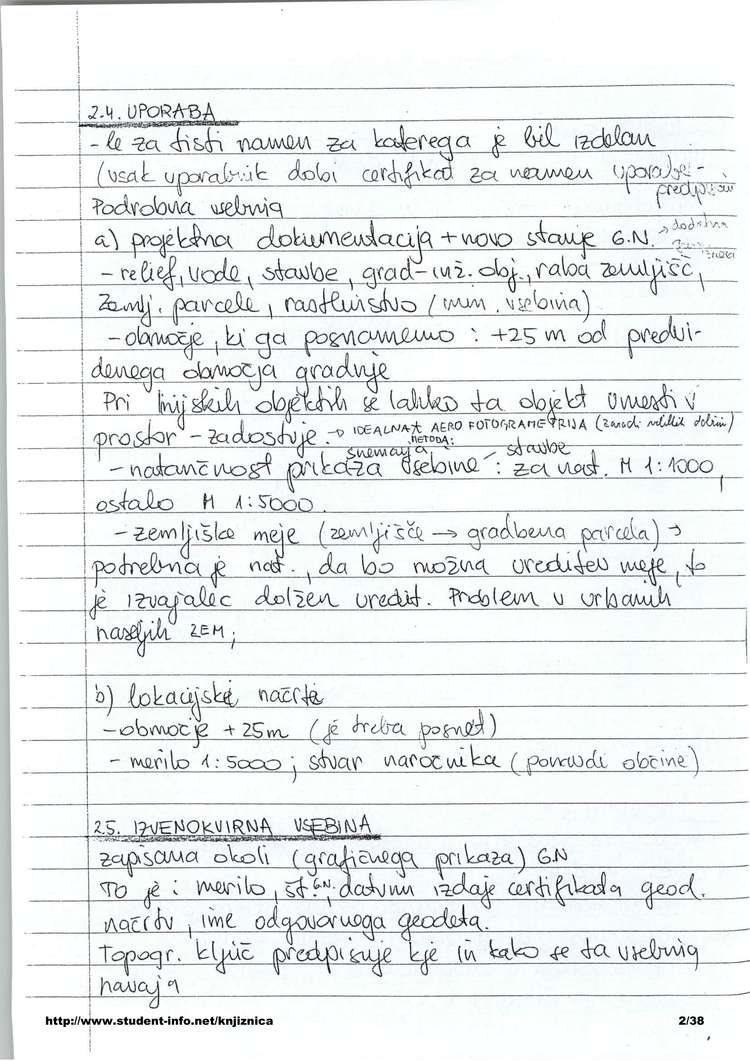 2.4. UPORABA
- le za tisti namen za katerega je bil izdelan
(vsak uporabnik dobi certifikat za namen uporabe -
predpisan
Podrobna vsebina
a) projektna dokumentacija + novo stanje G.N. →
- relief, vode, stavbe, grad-inž. obj., raba zemljišč,
Zemlj. parcele, rastlinstvo (min. vsebina)
- območje, ki ga posnamemo : +25 m od predvi-
denega območja gradnje
Pri linijskih objektih se lahko ta objekt umesti v
prostor - zadostuje. → IDEALNA AERO FOTOGRAMETRIJA (zaradi velikih dolžin)
METODA:
snemanja stavbe
- natančnost prikaza vsebine : za nat. M 1:1000,
ostalo M 1:5000.
- zemljiške meje (zemljišče → gradbena parcela) →
potrebna je nat., da bo možna ureditev meje, to
je izvajalec dolžen uredit. Problem v urbanih
naseljih ZEM;
b) lokacijske načrte
- območje + 25m (je treba posnet)
- merilo 1:5000; stvar naročnika (ponavdi občine)
2.5. IZVENOKVIRNA VSEBINA
zapisana okoli (grafičnega prikaza) G.N
TO je : merilo, št. G.N., datum izdaje certifikata geod.
načrtu, ime odgovornega geodeta.
Topogr. ključ predpisuje kje in kako se ta vsebina
navaja
http://www.student-info.net/knjiznica 2/38